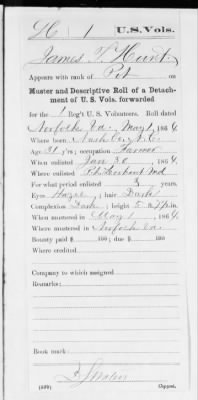 H 1 U.S. Vols.
James T. Hunt
Appears with rank of Pvt on
Muster and Descriptive Roll of a Detach-
ment of U. S. Vols. forwarded
for the 1 Reg't U. S. Volunteers. Roll dated
Norfolk Va. May 1, 1864
Where born Nash Co. N.C.
Age 31 y'rs; occupation Farmer
When enlisted Jan 30, 1864
Where enlisted Pt. Lookout Md
For what period enlisted 3 years.
Eyes Hazel; hair Dark
Complexion Dark; height 5 ft. in.
When mustered in May 1, 1864
Where mustered in Norfolk Va
Bounty paid $ 100; due $ 100
Where credited
Company to which assigned
Remarks:
Book mark:
(639) Copyist.